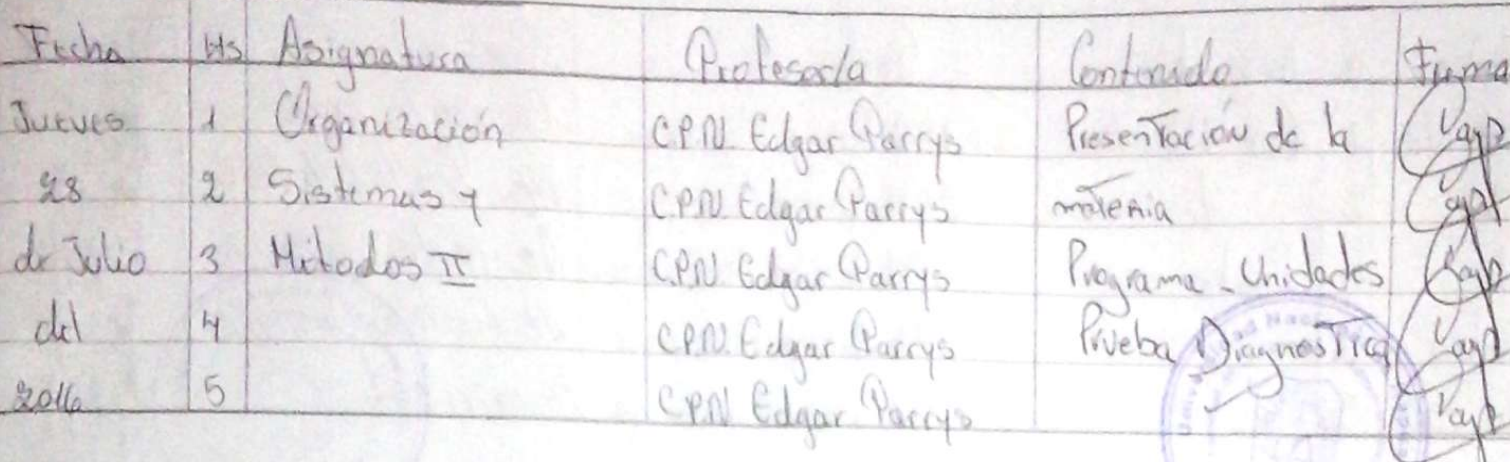 Fecha Hs Asignatura Profesor/a Contenido Firma
Jueves 1 Organización CPN Edgar Parrys Presentación de la
28 2 Sistemas y CPN Edgar Parrys materia
de Julio 3 Métodos II CPN Edgar Parrys Programa - Unidades
del 4 CPN Edgar Parrys Prueba Diagnostica
2016 5 CPN Edgar Parrys